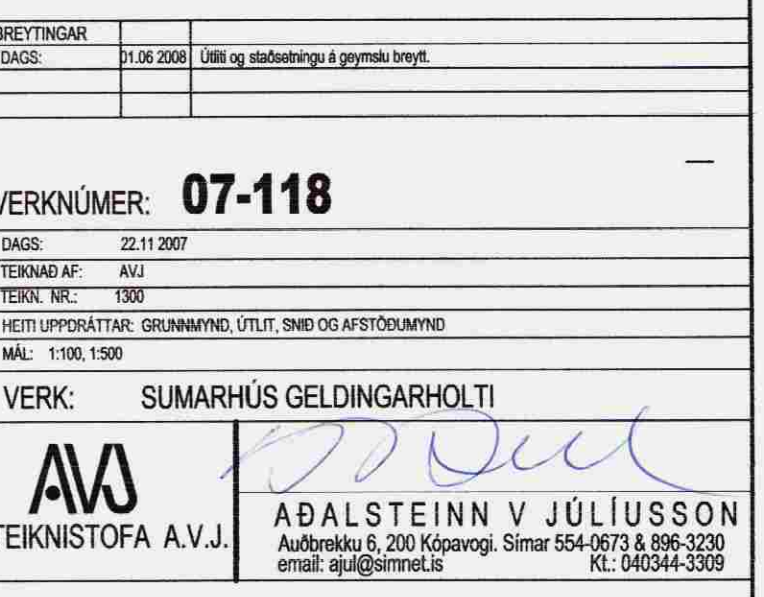 BREYTINGAR
DAGS: 01.06 2008 Útliti og staðsetningu á geymslu breytt.
VERKNÚMER: 07-118
DAGS: 22.11 2007
TEIKNAÐ AF: AVJ
TEIKN. NR.: 1300
HEITI UPPDRÁTTAR: GRUNNMYND, ÚTLIT, SNIÐ OG AFSTÖÐUMYND
MÁL: 1:100, 1:500
VERK: SUMARHÚS GELDINGARHOLTI
AVJ
TEIKNISTOFA A.V.J.
AÐALSTEINN V JÚLÍUSSON
Auðbrekku 6, 200 Kópavogi. Símar 554-0673 & 896-3230
email: ajul@simnet.is Kt.: 040344-3309